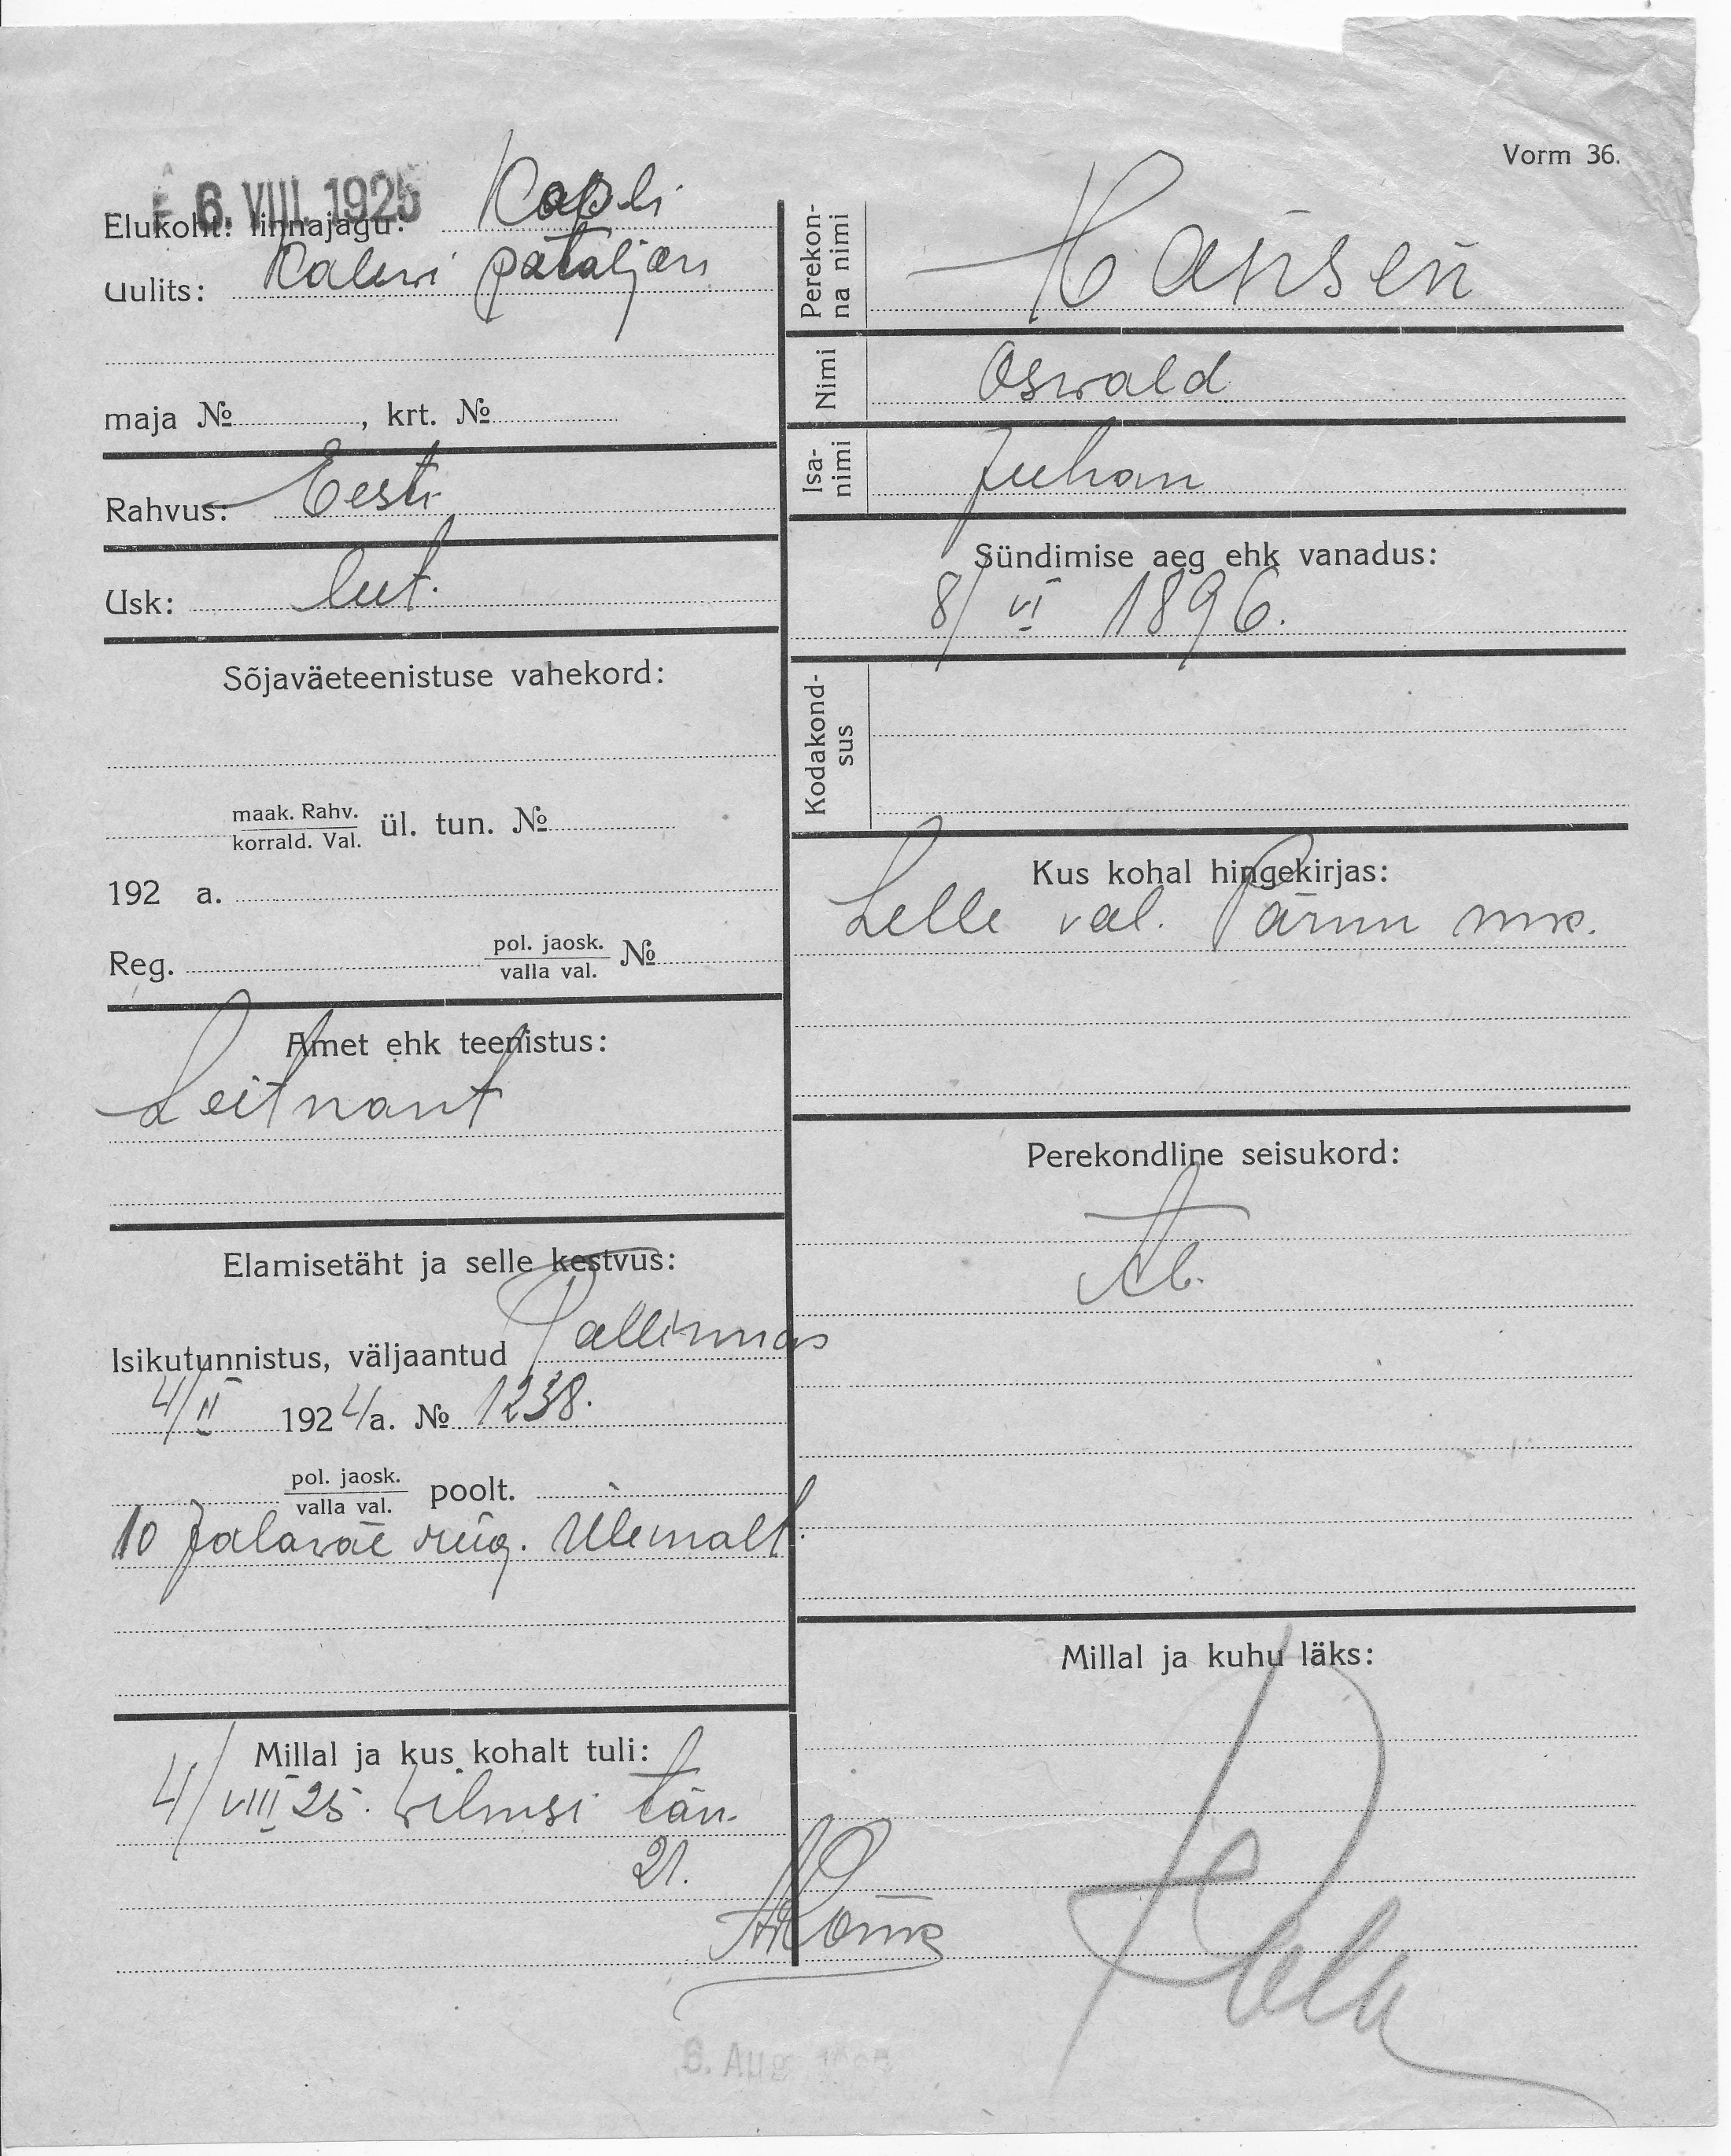 Vorm 36.
6. VIII. 1925
Elukoht: linnajagu: Kopli
Uulits: Kalevi pataljon
maja № , krt. №
Rahvus: Eesti
Usk: lut.
Sõjaväeteenistuse vahekord:
maak. Rahv.
korrald. Val. ül. tun. №
192 a.
Reg. pol. jaosk.
valla val. №
Amet ehk teenistus:
Leitnant
Elamisetäht ja selle kestvus:
Isikutunnistus, väljaantud Tallinnas
4/II 1924 a. № 1238.
pol. jaosk.
valla val. poolt.
10 Jalaväe rüg. Ülemalt.
Millal ja kus kohalt tuli:
4/VIII 25. Wilmsi tän.
21.
Perekon-
na nimi Hansen
Nimi Oswald
Isa-
nimi Juhan
Sündimise aeg ehk vanadus:
8/VI 1896.
Kodakond-
sus
Kus kohal hingekirjas:
Lelle val. Pärnu mk.
Perekondline seisukord:
Ab.
Millal ja kuhu läks:
6. Aug